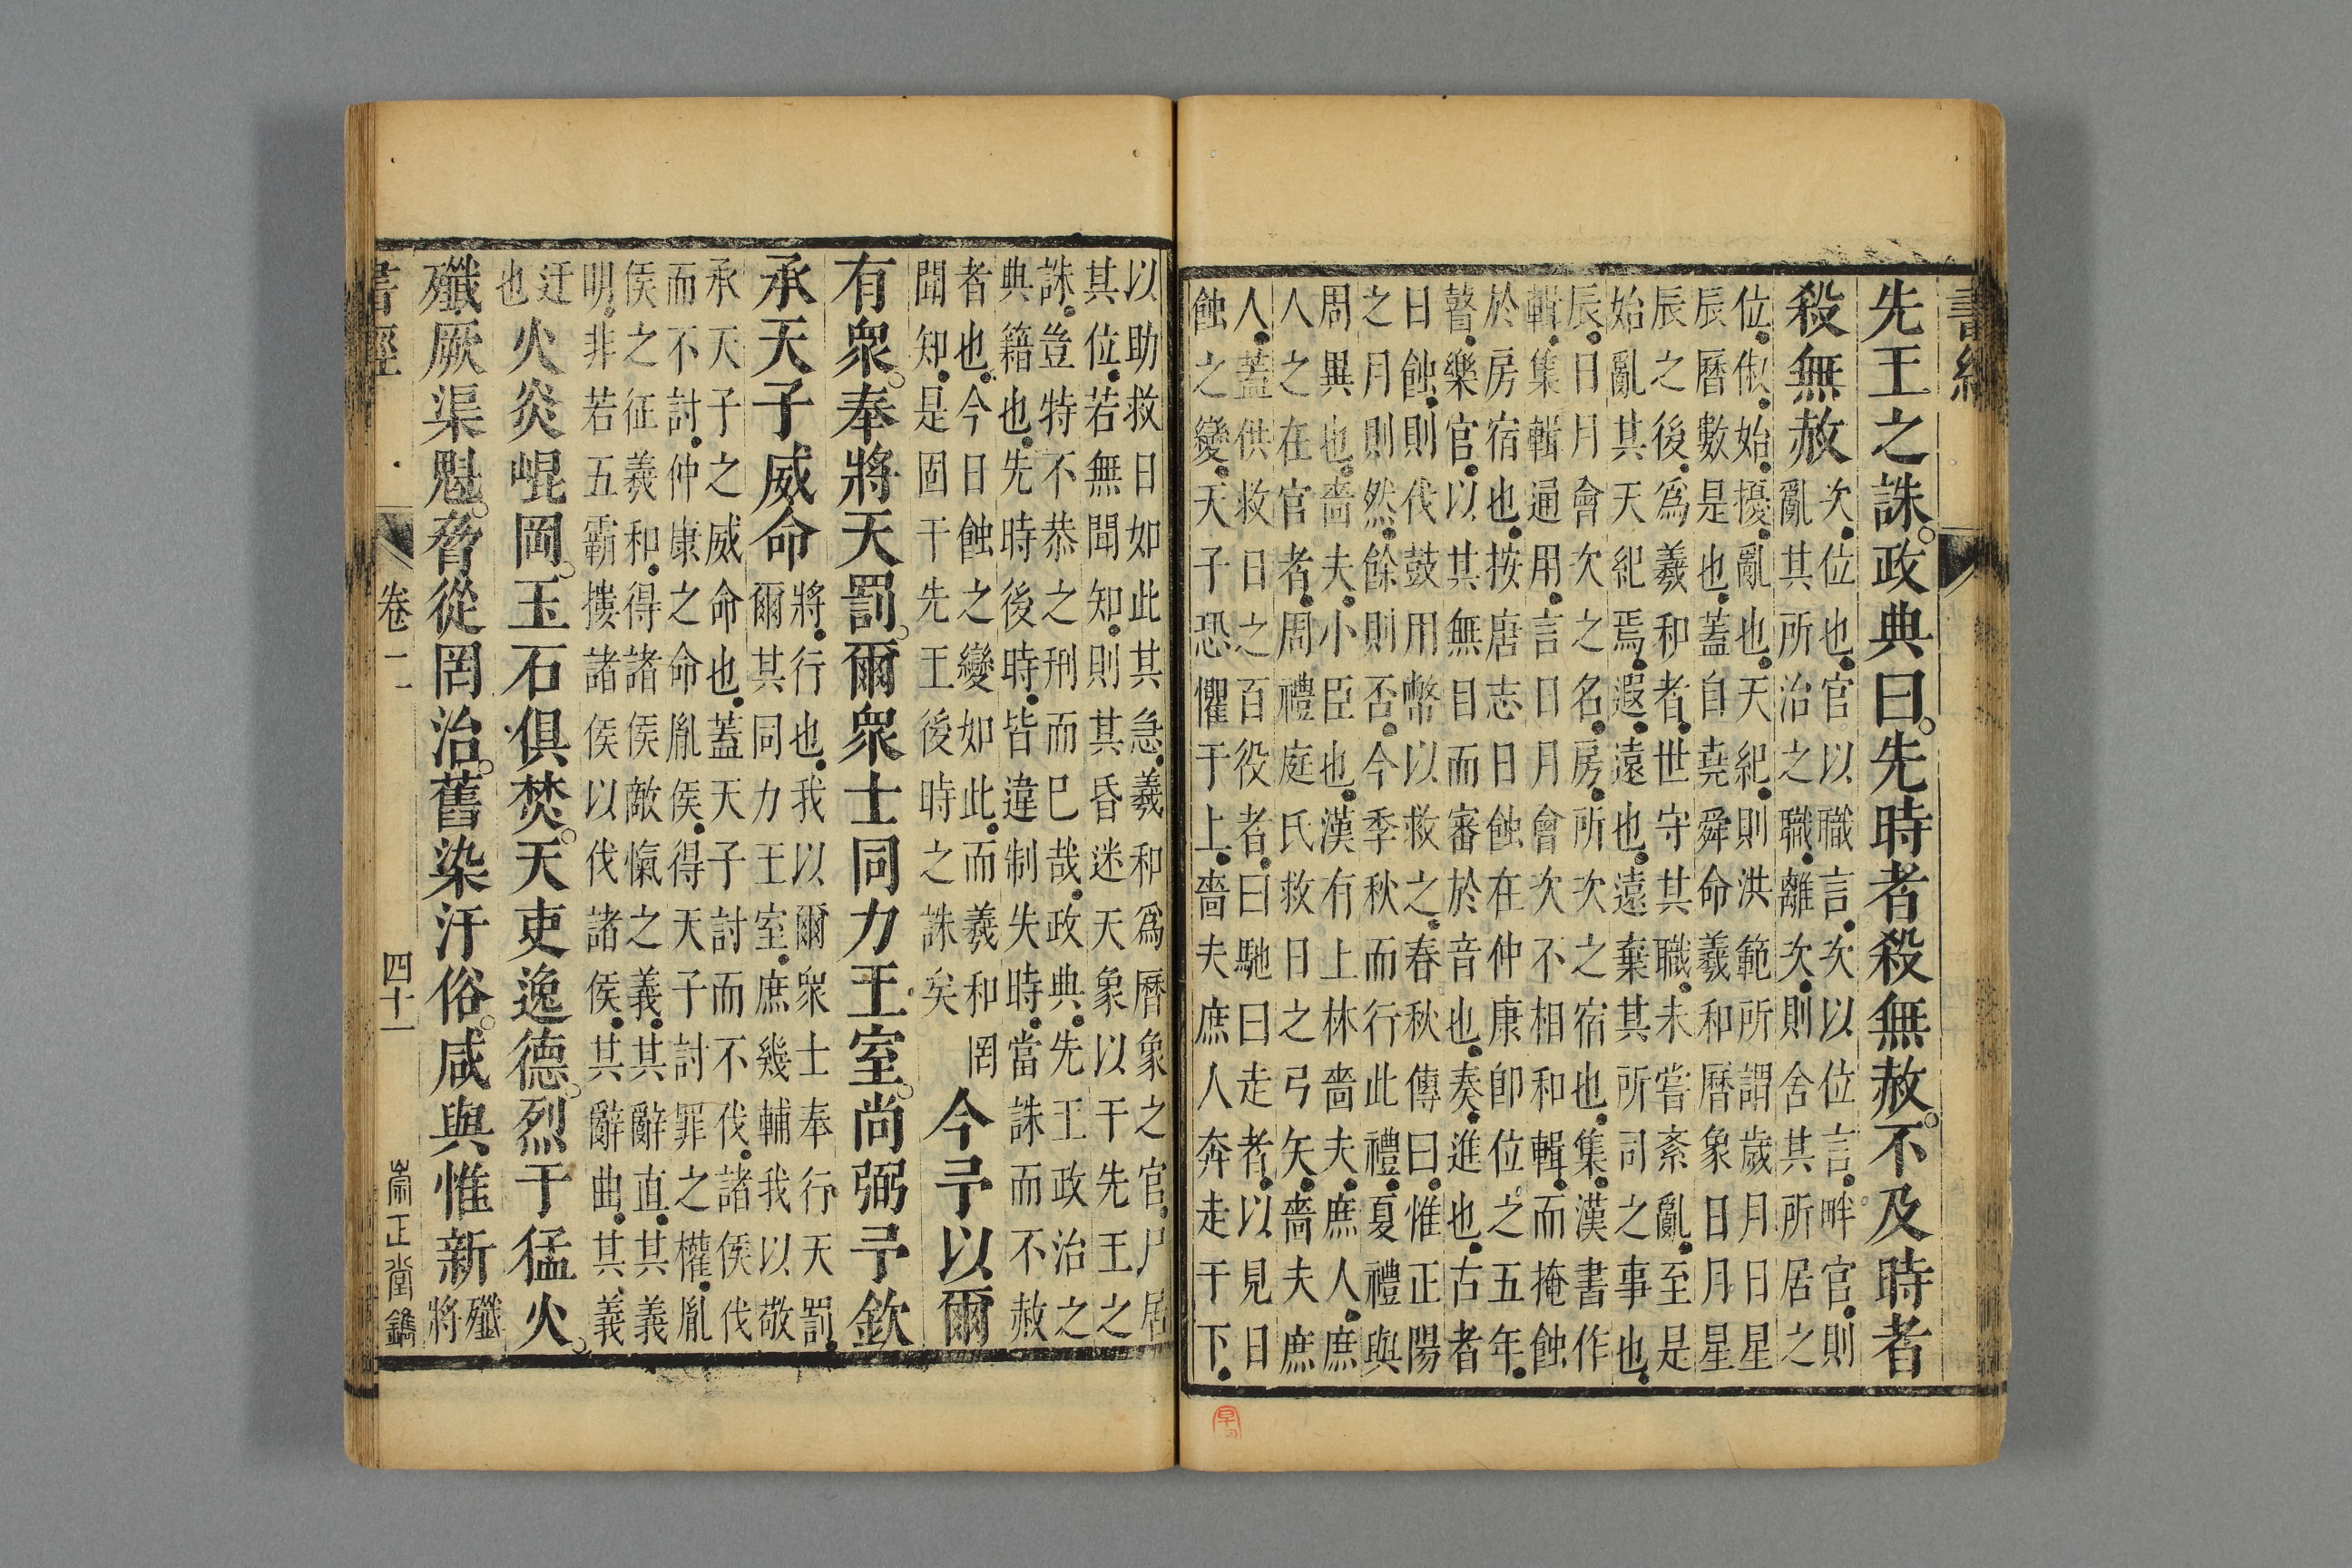 書經
先王之誅。政典曰。先時者殺無赦。不及時者
殺無赦
次位也官以職言次以位言畔官則
亂其所治之職離次則舍其所居之
位俶始擾亂也天紀則洪範所謂歲月日星
辰曆數是也蓋自堯舜命羲和曆象日月星
辰之後爲羲和者世守其職未嘗紊亂至是
始亂其天紀焉遐遠也遠棄其所司之事也
辰日月會次之名房所次之宿也集漢書作
輯集輯通用言日月會次不相和輯而掩蝕
於房宿也按唐志日蝕在仲康卽位之五年
瞽樂官以其無目而審於音也奏進也古者
日蝕則伐鼓用幣以救之春秋傳曰惟正陽
之月則然餘則否今季秋而行此禮夏禮與
周異也嗇夫小臣也漢有上林嗇夫庶人庶
人之在官者周禮庭氏救日之弓矢嗇夫庶
人蓋供救日之百役者曰馳曰走者以見日
蝕之變天子恐懼于上嗇夫庶人奔走于下
以助救日如此其急羲和爲曆象之官尸居
其位若無聞知則其昏迷天象以干先王之
誅豈特不恭之刑而已哉政典先王政治之
典籍也先時後時皆違制失時當誅而不赦
者也今日蝕之變如此而羲和罔
聞知是固干先王後時之誅矣
今予以爾
有衆。奉將天罰。爾衆士同力王室。尚弼予欽
承天子威命
將行也我以爾衆士奉行天罰
爾其同力王室庶幾輔我以敬
承天子之威命也蓋天子討而不伐諸侯伐
而不討仲康之命胤侯得天子討罪之權胤
侯之征羲和得諸侯敵愾之義其辭直其義
明非若五霸摟諸侯以伐諸侯其辭曲其義
迂
也
火炎崐岡。玉石俱焚。天吏逸德。烈于猛火。
殲厥渠魁。脅從罔治。舊染汙俗。咸與惟新
殲
將
書經 卷二 四十一 崇正堂鐫